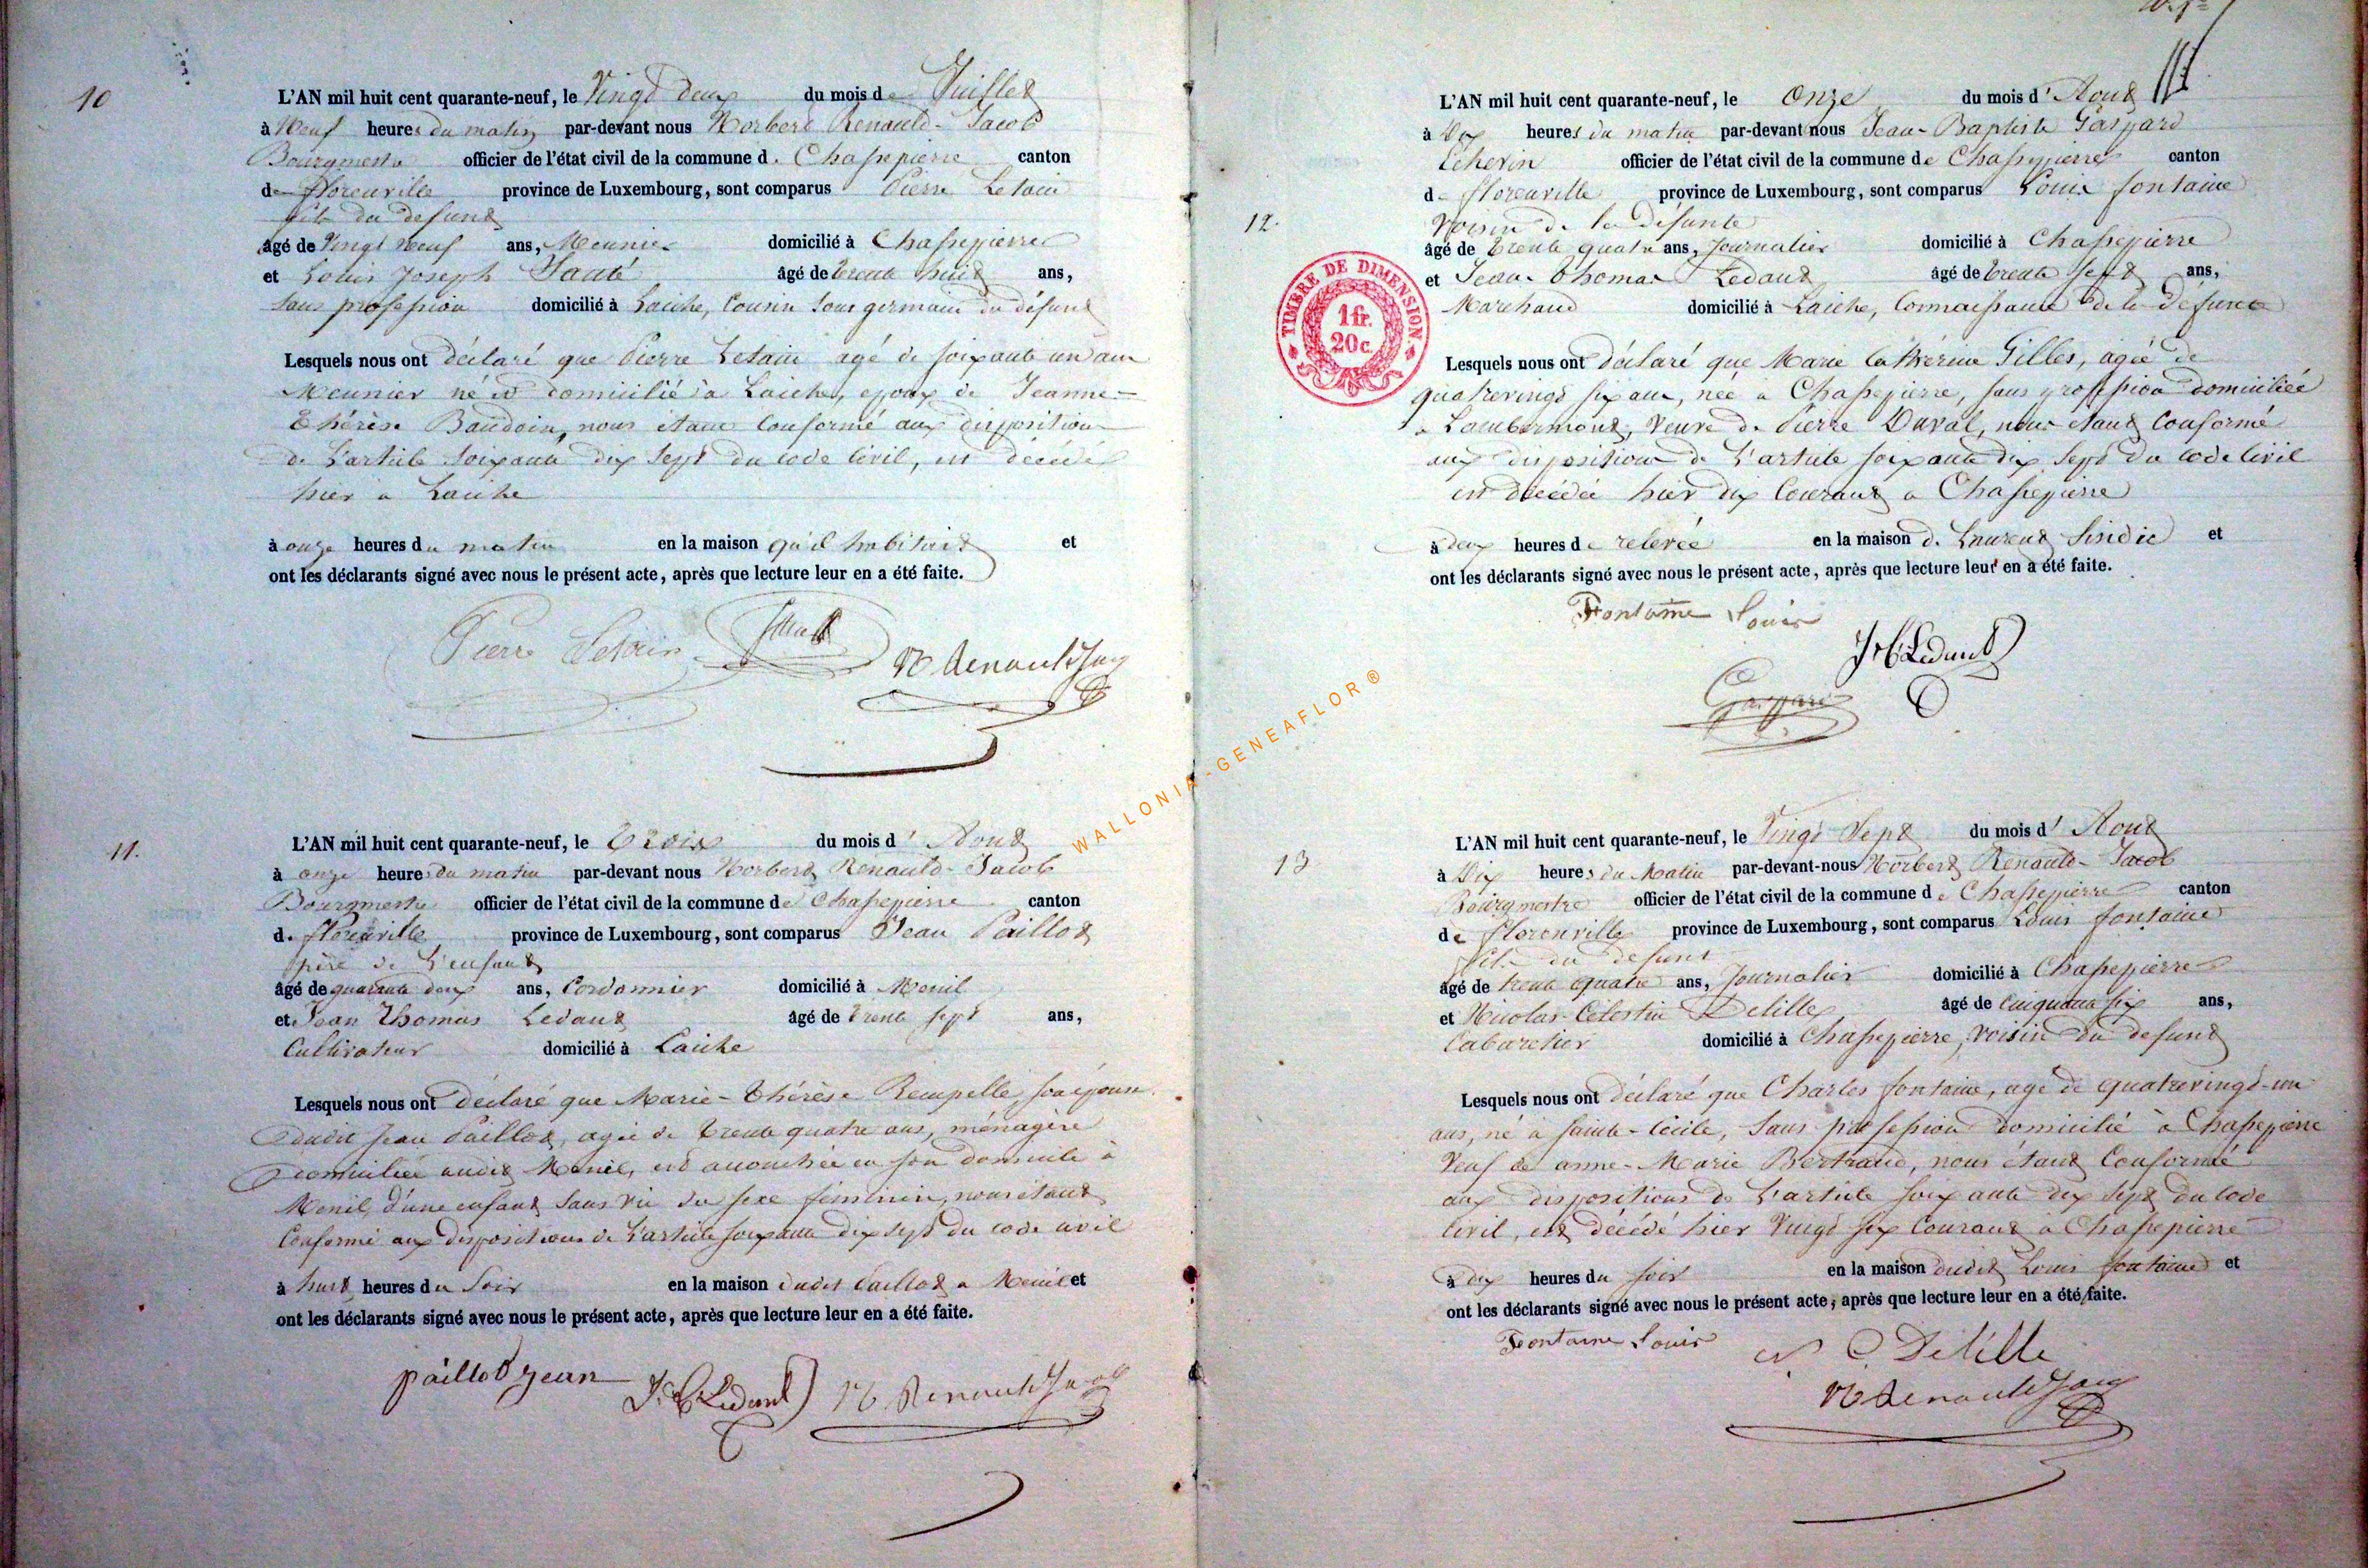 10
L'AN mil huit cent quarante-neuf, le Vingt deux du mois de Juillet
à Neuf heures du matin par-devant nous Norbert Renauld-Jacob
Bourgmestre officier de l'état civil de la commune de Chassepierre canton
de Florenville province de Luxembourg, sont comparus Pierre Letain
fils du defunt
âgé de Vingt neuf ans, Meunier domicilié à Chassepierre
et Louis Joseph âgé de trente huit ans,
sans profession domicilié à Laiche, Cousin Sous germain du défunt
Lesquels nous ont déclaré que Pierre Letain agé de soixante un ans
Meunier né et domicilié à Laiche, epoux de Jeanne-
Thérèse Baudoin, nous étant Conformé aux dispositions
de L'article soixante dix Sept du code Civil, est décédé
hier à Laiche
à onze heures du matin en la maison qu'il habitait et
ont les déclarants signé avec nous le présent acte, après que lecture leur en a été faite.
Pierre Letain
N Renauld Jacob
11.
L'AN mil huit cent quarante-neuf, le Trois du mois d' Aout
à onze heures du matin par-devant nous Norbert Renauld-Jacob
Bourgmestre officier de l'état civil de la commune de Chassepierre canton
de Florenville province de Luxembourg, sont comparus Jean Paillot
père de L'enfant
âgé de quarante deux ans, Cordonnier domicilié à Menil
et Jean Thomas Ledant âgé de Trente sept ans,
Cultivateur domicilié à Laiche
Lesquels nous ont déclaré que Marie-Thérèse son épouse
dudit Jean Paillot, agée de trente quatre ans, ménagère
domiciliée audit Menil, est accouchée en son domicile à
Menil, d'une enfant Sans vie du sexe féminin, nous étant
Conformé aux dispositions de L'article soixante dix sept du code civil
à huit heures du Soir en la maison dudit Paillot à Menil et
ont les déclarants signé avec nous le présent acte, après que lecture leur en a été faite.
paillot jean J. T. Ledant N Renauld Jacob
12.
L'AN mil huit cent quarante-neuf, le Onze du mois d' Aout
à Dix heures du matin par-devant nous Jean-Baptiste Gaspard
Echevin officier de l'état civil de la commune de Chassepierre canton
de Florenville province de Luxembourg, sont comparus Louis fontaine
Voisin de la défunte
âgé de trente quatre ans, Journalier domicilié à Chassepierre
et Jean Thomas Ledant âgé de trente sept ans,
Marchand domicilié à Laiche, Connaissance de la défunte
TIMBRE DE DIMENSION
1 fr.
20 c.
Lesquels nous ont déclaré que Marie Catherine Gilles, agée de
quatrevingt six ans, née à Chassepierre, sans profession domiciliée
à Lambermont, Veuve de Pierre Duval, nous étant Conformé
aux dispositions de L'article soixante dix Sept du code Civil
est décédée hier dix Courant à Chassepierre
à deux heures de relevée en la maison de Laurent Sindic et
ont les déclarants signé avec nous le présent acte, après que lecture leur en a été faite.
Fontaine Louis
J T Ledant
Gaspard
WALLONIA-GENEAFLOR ®
13
L'AN mil huit cent quarante-neuf, le Vingt Sept du mois d' Aout
à Dix heures du Matin par-devant-nous Norbert Renauld-Jacob
Bourgmestre officier de l'état civil de la commune de Chassepierre canton
de Florenville province de Luxembourg, sont comparus Louis fontaine
fils du defunt
âgé de trente quatre ans, Journalier domicilié à Chassepierre
et Nicolas-Celestin Delille âgé de Cinquante six ans,
Cabaretier domicilié à Chassepierre, voisin du défunt
Lesquels nous ont déclaré que Charles fontaine, agé de quatrevingt-un
ans, né à Sainte-Cécile, Sans profession domicilié à Chassepierre
Veuf de anne-Marie Bertrand, nous étant Conformé
aux dispositions de L'article soixante dix Sept du Code
Civil, est décédé hier Vingt six Courant à Chassepierre
à dix heures du soir en la maison dudit Louis fontaine et
ont les déclarants signé avec nous le présent acte, après que lecture leur en a été faite.
Fontaine Louis N C Delille
N Renauld Jacob